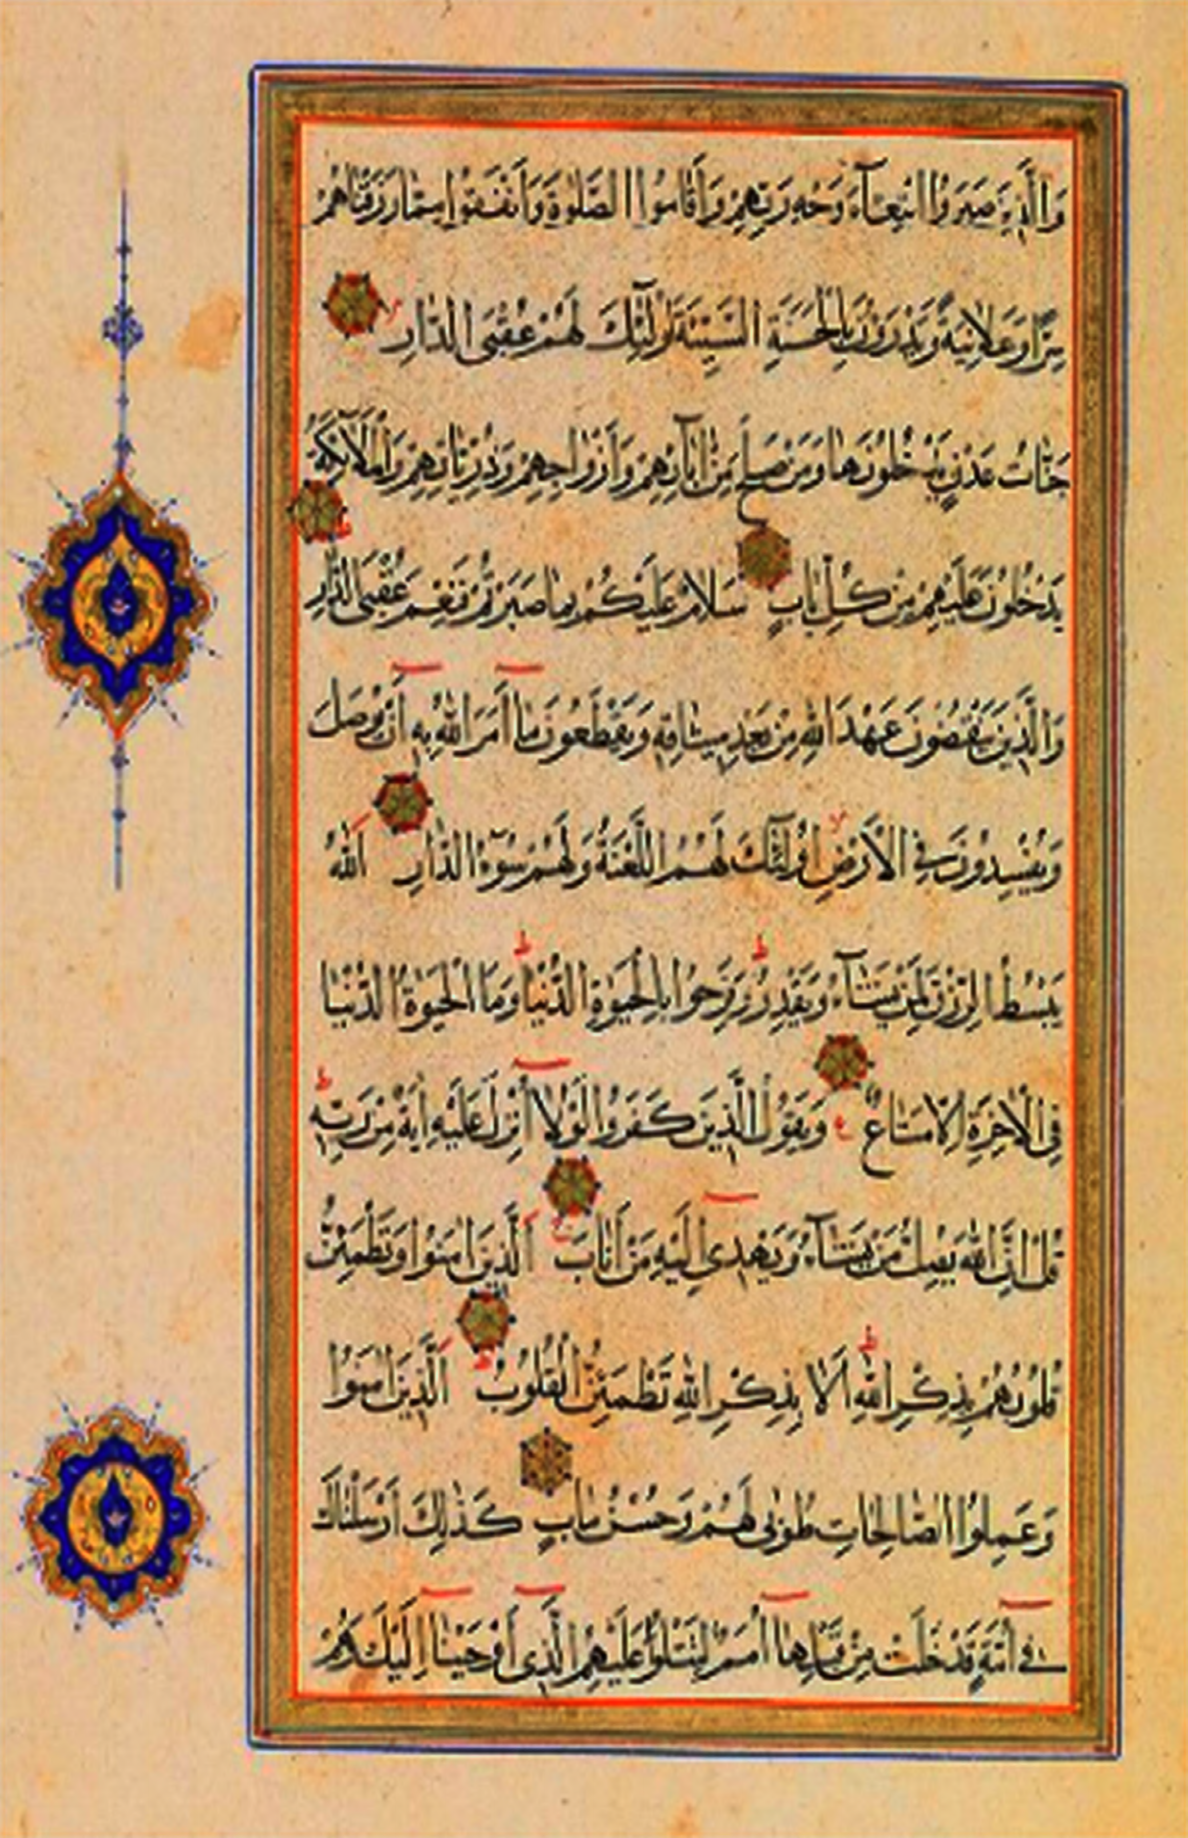 وَالَّذِينَ صَبَرُوا ابْتِغَاءَ وَجْهِ رَبِّهِمْ وَأَقَامُوا الصَّلٰوةَ وَأَنْفَقُوا مِمَّا رَزَقْنَاهُمْ
سِرًّا وَعَلَانِيَةً وَيَدْرَؤُنَ بِالْحَسَنَةِ السَّيِّئَةَ أُولٰئِكَ لَهُمْ عُقْبَى الدَّارِ
جَنَّاتُ عَدْنٍ يَدْخُلُونَهَا وَمَنْ صَلَحَ مِنْ اٰبَائِهِمْ وَأَزْوَاجِهِمْ وَذُرِّيَّاتِهِمْ وَالْمَلَائِكَةُ
يَدْخُلُونَ عَلَيْهِمْ مِنْ كُلِّ بَابٍ سَلَامٌ عَلَيْكُمْ بِمَا صَبَرْتُمْ فَنِعْمَ عُقْبَى الدَّارِ
وَالَّذِينَ يَنْقُضُونَ عَهْدَ اللّٰهِ مِنْ بَعْدِ مِيثَاقِهِ وَيَقْطَعُونَ مَا أَمَرَ اللّٰهُ بِهِ أَنْ يُوصَلَ
وَيُفْسِدُونَ فِي الْأَرْضِ أُولٰئِكَ لَهُمُ اللَّعْنَةُ وَلَهُمْ سُوءُ الدَّارِ اَللّٰهُ
يَبْسُطُ الرِّزْقَ لِمَنْ يَشَاءُ وَيَقْدِرُ وَفَرِحُوا بِالْحَيٰوةِ الدُّنْيَا وَمَا الْحَيٰوةُ الدُّنْيَا
فِي الْاٰخِرَةِ إِلَّا مَتَاعٌ وَيَقُولُ الَّذِينَ كَفَرُوا لَوْلَا أُنْزِلَ عَلَيْهِ اٰيَةٌ مِنْ رَبِّهِ
قُلْ إِنَّ اللّٰهَ يُضِلُّ مَنْ يَشَاءُ وَيَهْدِي إِلَيْهِ مَنْ أَنَابَ اَلَّذِينَ اٰمَنُوا وَتَطْمَئِنُّ
قُلُوبُهُمْ بِذِكْرِ اللّٰهِ أَلَا بِذِكْرِ اللّٰهِ تَطْمَئِنُّ الْقُلُوبُ اَلَّذِينَ اٰمَنُوا
وَعَمِلُوا الصَّالِحَاتِ طُوبٰى لَهُمْ وَحُسْنُ مَاٰبٍ كَذٰلِكَ أَرْسَلْنَاكَ
فِي أُمَّةٍ قَدْ خَلَتْ مِنْ قَبْلِهَا أُمَمٌ لِتَتْلُوَا عَلَيْهِمُ الَّذِي أَوْحَيْنَا إِلَيْكَ وَهُمْ